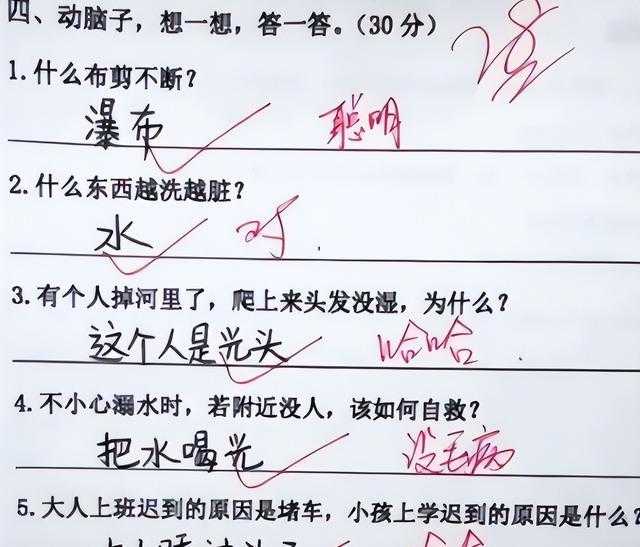 四、动脑子，想一想，答一答。（30分）
1.什么布剪不断？
瀑布 聪明
2.什么东西越洗越脏？
水 对
3.有个人掉河里了，爬上来头发没湿，为什么？
这个人是光头 哈哈
4.不小心溺水时，若附近没人，该如何自救？
把水喝光 没毛病
5.大人上班迟到的原因是堵车，小孩上学迟到的原因是什么？